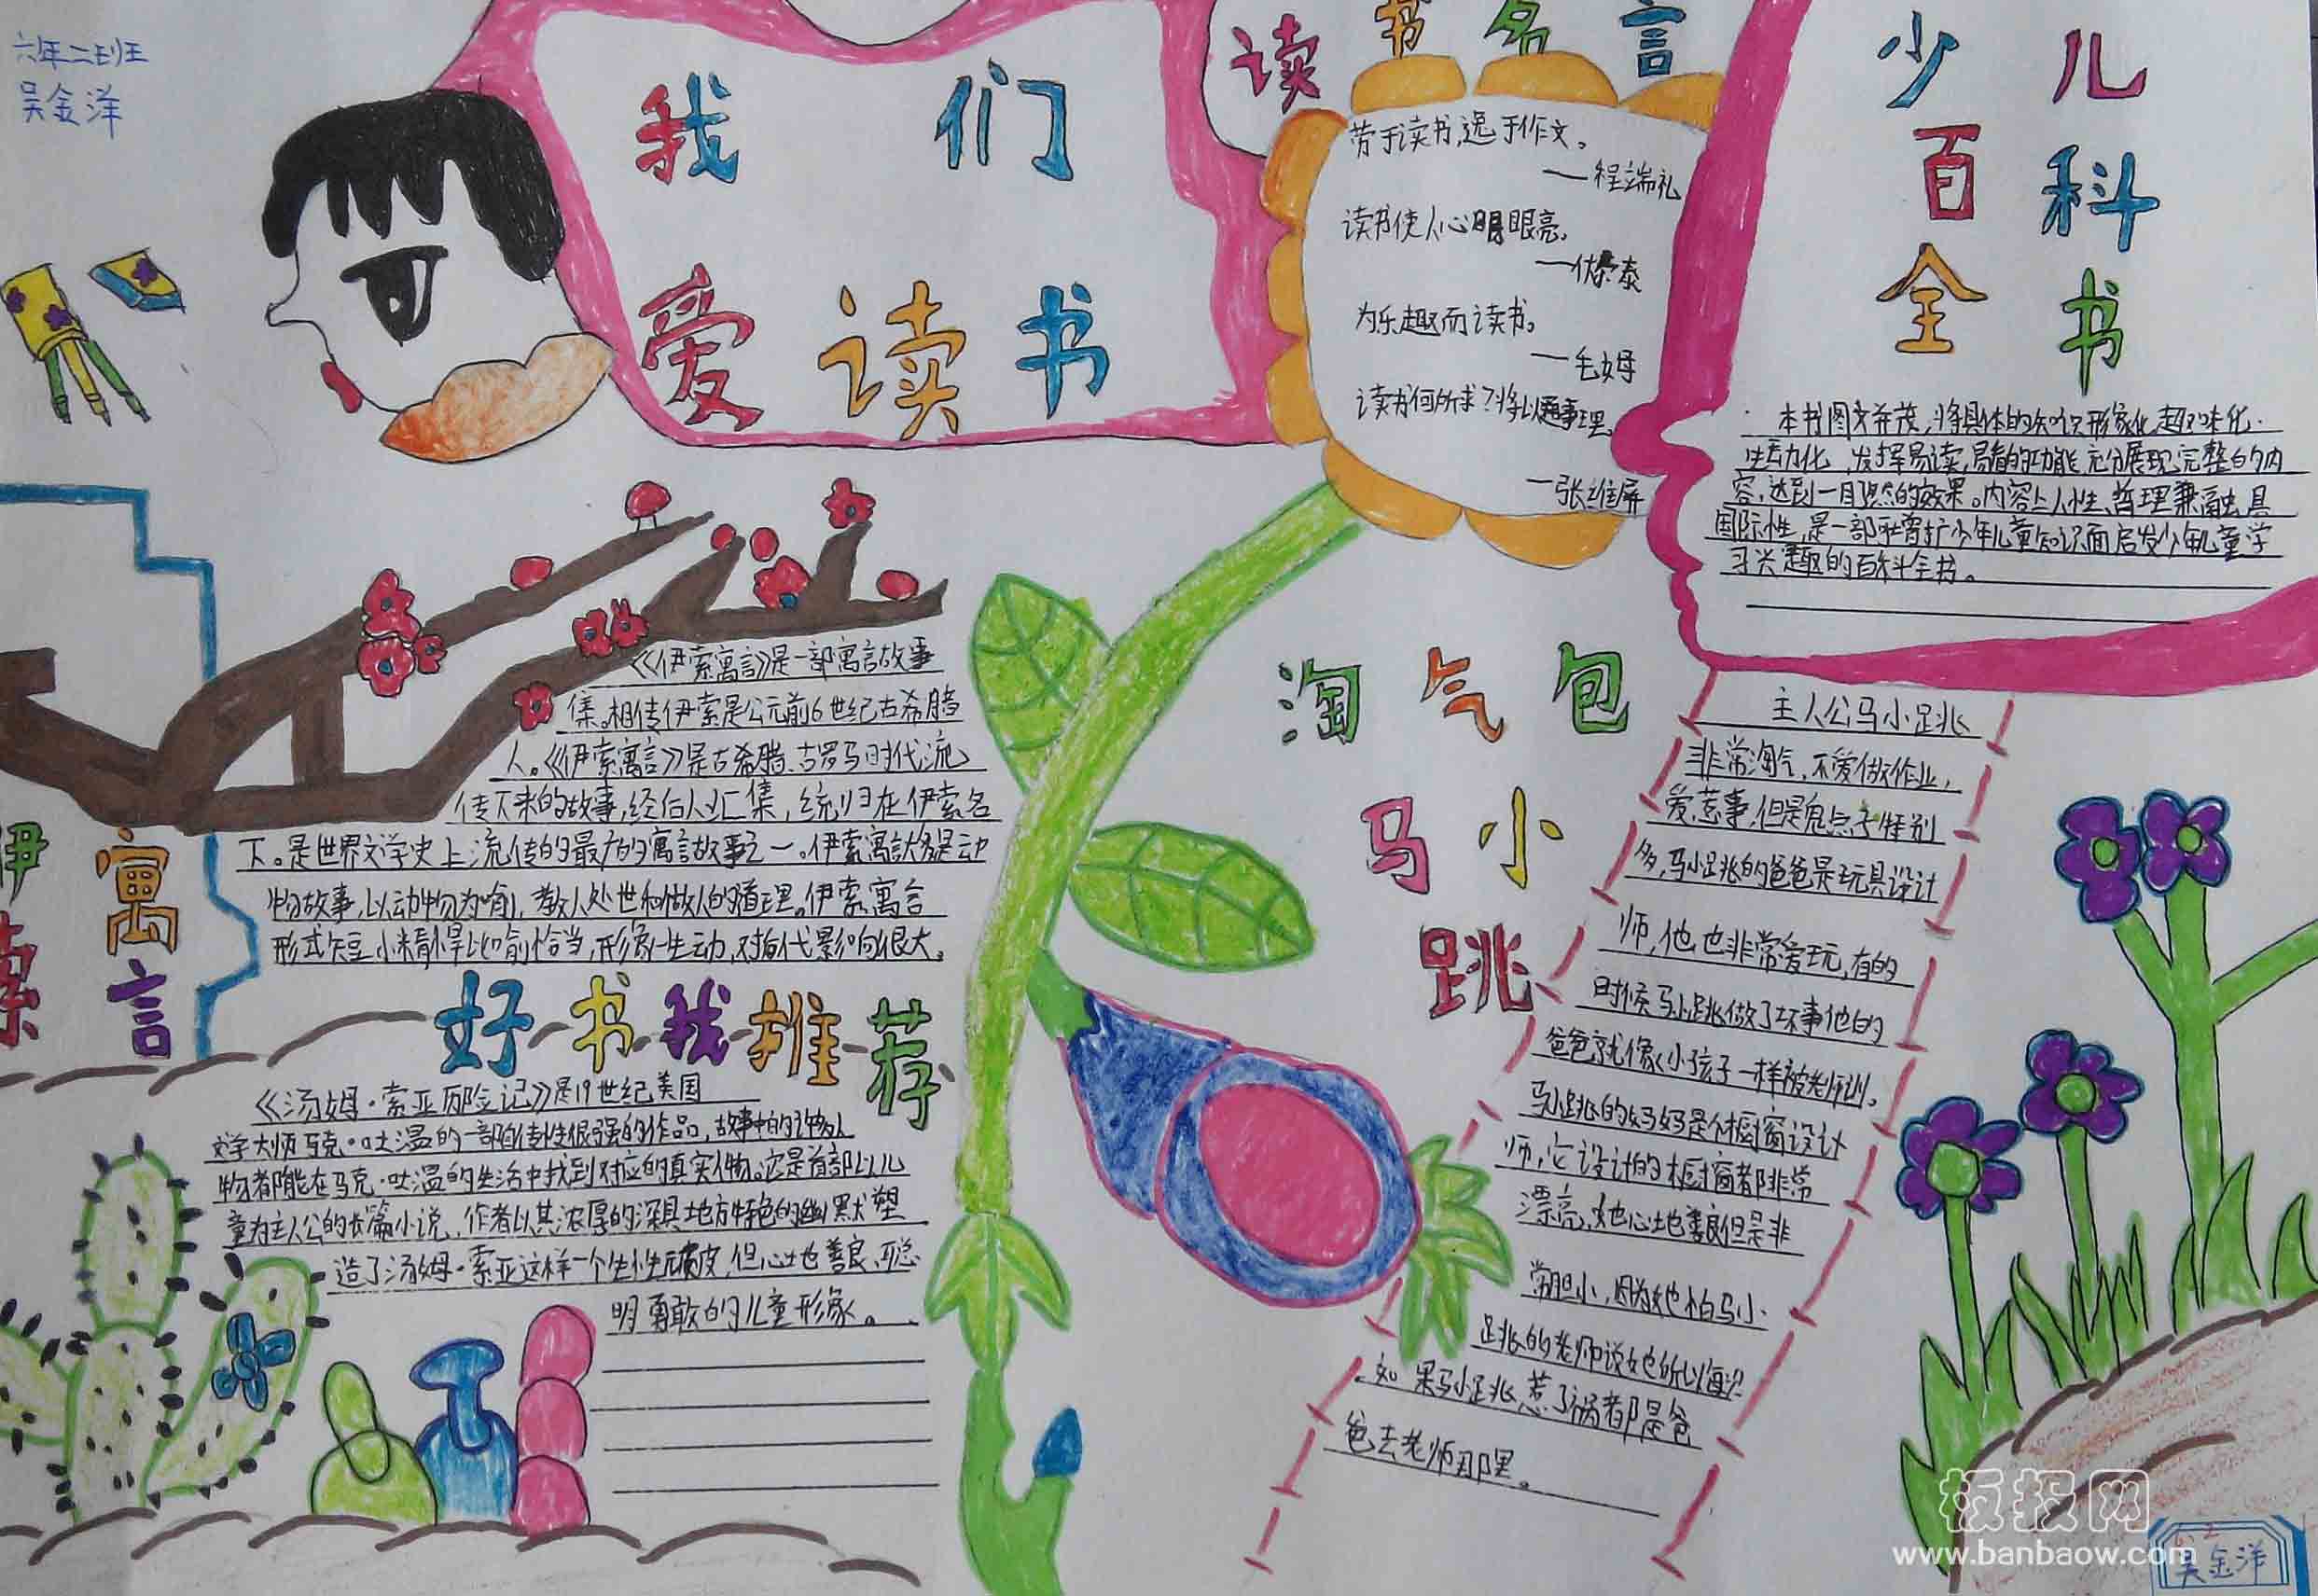 六年二班
吴金洋
我们
爱读书
读书名言
劳于读书,逸于作文。
——程端礼
读书使人心明眼亮。
——伏尔泰
为乐趣而读书。
——毛姆
读书何所求?将以通事理。
——张维屏
少儿
百科
全书
本书图文并茂,将具体的知识形象化,趣味化
生动化,发挥易读,易看的功能,充分展现完整的内
容,达到一目了然的效果。内容上人性、哲理兼融具
国际性,是一部 增扩少年儿童知识面启发少年儿童学
习兴趣的百科全书。
伊索
寓言
《伊索寓言》是一部寓言故事
集。相传伊索是公元前6世纪古希腊
人。《伊索寓言》是古希腊、古罗马时代流
传下来的故事,经后人汇集,统归在伊索名
下。是世界文学史上流传的最广的寓言故事之一。伊索寓言大多是动
物故事,以动物为喻,教人处世和做人的道理。伊索寓言
形式短小精悍比喻恰当,形象生动,对后代影响很大。
好书我推荐
《汤姆·索亚历险记》是19世纪美国
文学大师马克·吐温的一部自传性很强的作品,故事中的许多人
物都能在马克·吐温的生活中找到对应的真实人物。它是首部以儿
童为主人公的长篇小说,作者以其浓厚的深具地方特色的幽默塑
造了汤姆·索亚这样一个生性顽皮,但心地善良、聪
明勇敢的儿童形象。
淘气包
马小
跳
主人公马小跳
非常淘气,不爱做作业,
爱惹事,但是鬼点子特别
多,马小跳的爸爸是玩具设计
师,他也非常爱玩,有的
时候马小跳做了坏事他的
爸爸就像小孩子一样被老师训。
马小跳的妈妈是个橱窗设计
师,它设计的橱窗都非常
漂亮,她心地善良但是非
常胆小,因为她怕马小
跳的老师说她所以每次
如果马小跳惹了祸都是爸
爸去老师那里。
板报网
www.banbaow.com
6.2
吴金洋